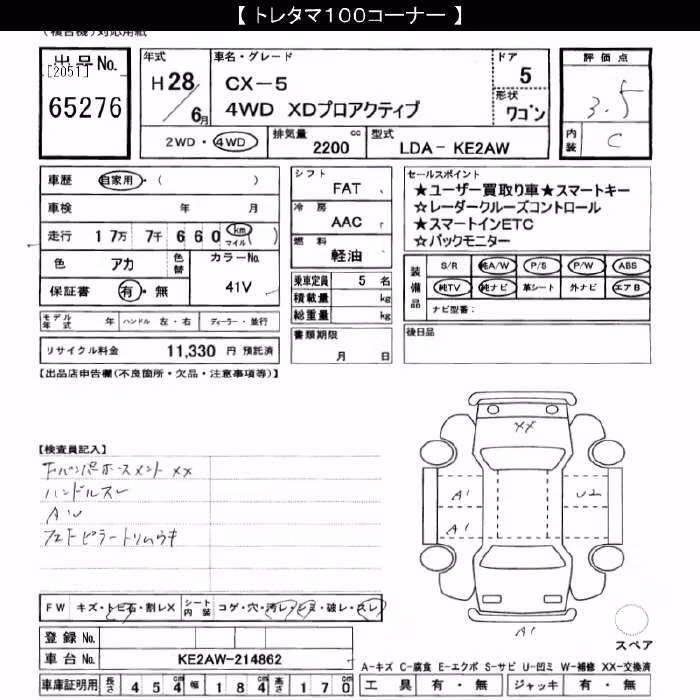 【 トレタマ100コーナー 】
(複合機)対応用紙
出品No.
[2051]
65276
年式
H 28 / 6月
車名・グレード
CX-5
4WD XDプロアクティブ
ドア
5
形状
ワゴン
2WD・4WD
排気量 2200 cc
型式 LDA- KE2AW
評価点
3.5
内装 C
車歴 自家用・( )
車検 年 月
走行 17万 7千 660 km マイル ( )
色 アカ 色替 カラーNo.
保証書 有・無 41V
シフト FAT
冷房 AAC
燃料 軽油
乗車定員 5 名
積載量 kg
総重量 kg
書類期限
月 日
セールスポイント
★ユーザー買取り車★スマートキー
☆レーダークルーズコントロール
★スマートインETC
☆バックモニター
装備品
S/R 純A/W P/S P/W ABS
純TV 純ナビ 革シート 外ナビ エアB
ナビ型番:
後日品
モデル年式 年 ハンドル 左・右 ディーラー・並行
リサイクル料金 11,330 円 預託済
【出品店申告欄(不良箇所・欠品・注意事項等)】
【検査員記入】
ハンドルスレ
AW
XX
A1
A1
U2
A1
FW キズ・トビ石・割レX シート内装 コゲ・穴・汚レ・シミ・破レ・スレ
登録 No.
車台 No. KE2AW-214862
車庫証明用 長さ 454cm 幅 184cm 高さ 170cm
スペア
A-キズ C-腐食 E-エクボ S-サビ U-凹ミ W-補修 XX-交換済
工具 有・無 ジャッキ 有・無